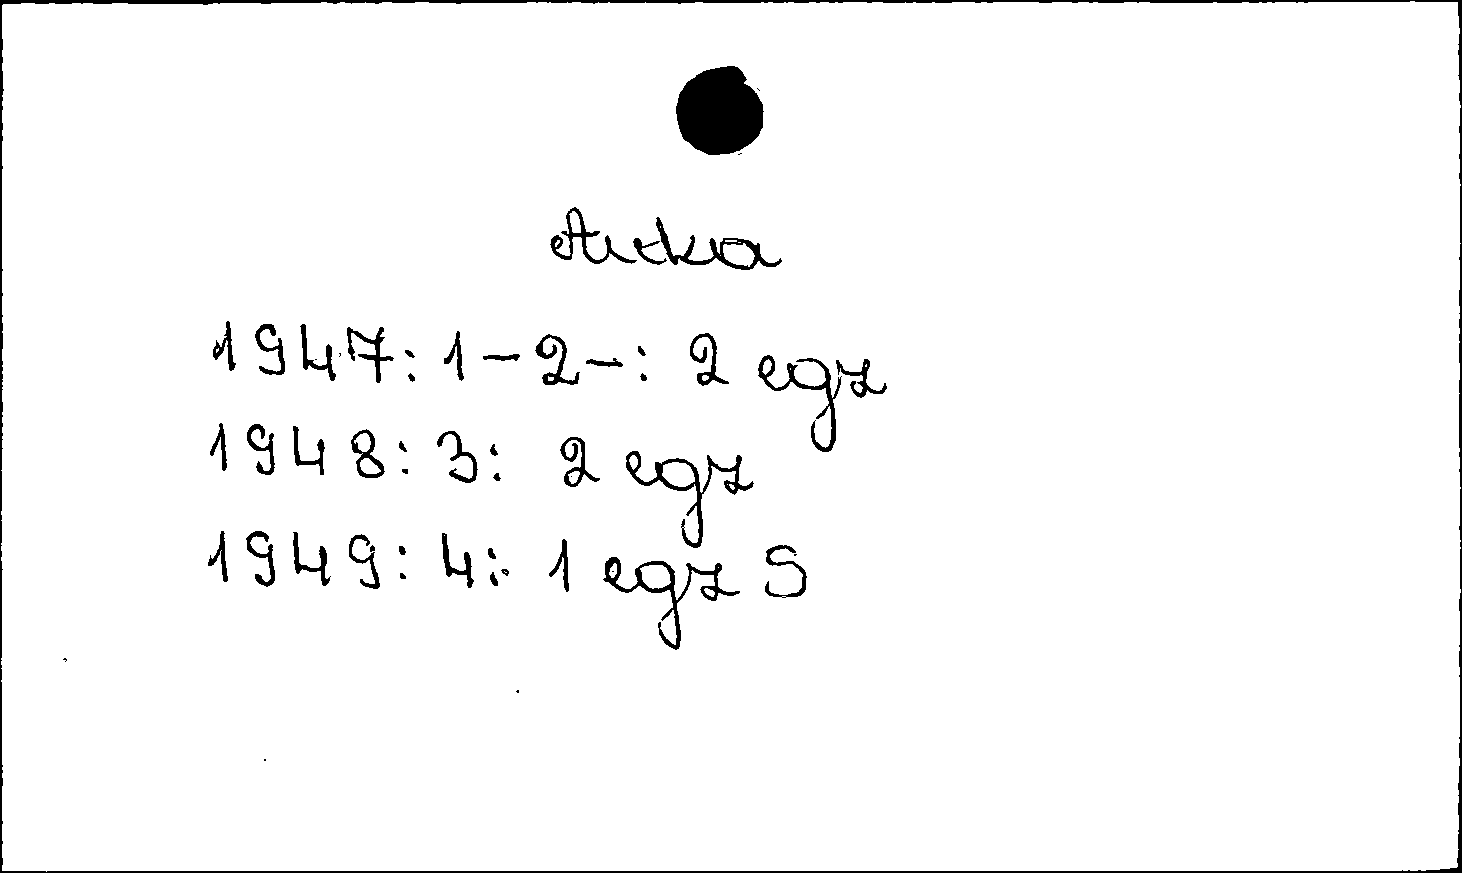 1947: 1-2-: 2 egz
1948: 3: 2 egz
1949: 4: 1 egz S